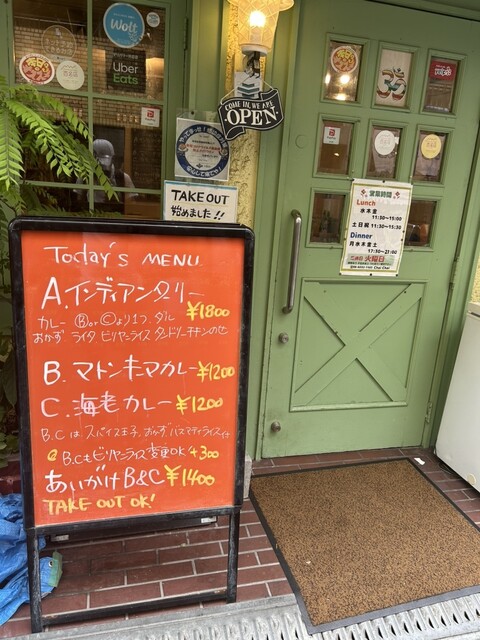 Wolt
Uber
Eats
COME IN, WE ARE
OPEN
TAKE OUT
始めました!!
営業時間
Lunch
水木金
11:30~15:00
土日祝 11:30~15:30
Dinner
月水木金土
17:30~21:00
定休日 火曜日
Today's MENU
A.インディアンターリー
¥1800
カレー Ⓑ or Ⓒより1つ、ダル
おかず ライタ ビリヤニライス タンドリーチキンのせ
B.マトンキーマカレー ¥1200
C.海老カレー ¥1200
B.Cは スパイス玉子、おかず バスマティライス付
B.Cもビリヤニライス変更OK +300
あいがけB&C ¥1400
TAKE OUT OK!